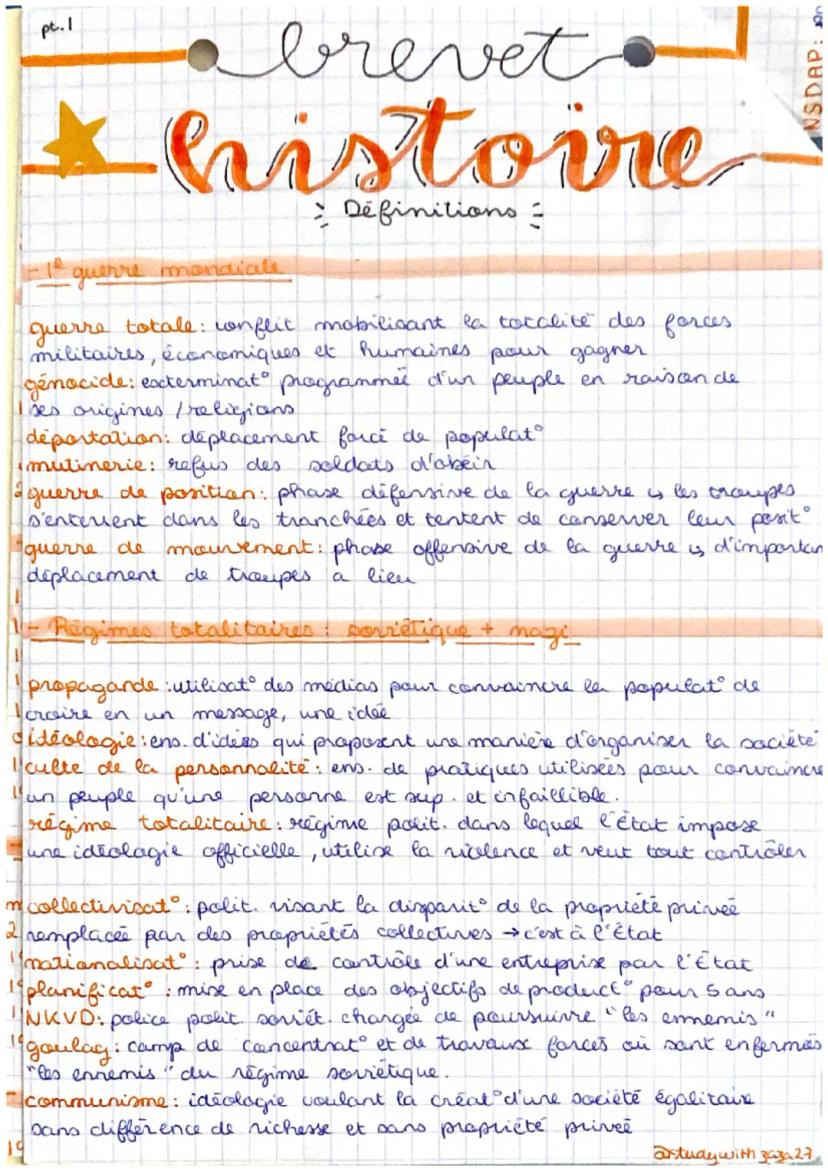 pt.1
brevet
NSDAP:
histoire
Définitions
- 1e guerre mondiale
guerre totale: conflit mobilisant la totalité des forces
militaires, économiques et humaines pour gagner
génocide: exterminat° programmée d'un peuple en raison de
ses origines / religions
déportation: déplacement forcé de populat°
mutinerie: refus des soldats d'obéir
guerre de position: phase défensive de la guerre ↳ les troupes
s'enterrent dans les tranchées et tentent de conserver leur posit°
guerre de mouvement: phase offensive de la guerre ↳ d'importan
déplacement de troupes a lieu
- Régimes totalitaires : soviétique + nazi
propagande : utilisat° des médias pour convaincre la populat° de
croire en un message, une idée
idéologie: ens. d'idées qui proposent une manière d'organiser la société
culte de la personnalité: ens. de pratiques utilisées pour convaincre
un peuple qu'une personne est sup. et infaillible.
régime totalitaire: régime polit. dans lequel l'État impose
une idéologie officielle, utilise la violence et veut tout contrôler
collectivisat°: polit. visant la disparit° de la propriété privée
remplacée par des propriétés collectives → c'est à l'État
nationalisat°: prise de contrôle d'une entreprise par l'État
planificat° : mise en place des objectifs de product° pour 5 ans
NKVD: police polit. soviét. chargée de poursuivre "les ennemis"
goulag: camp de concentrat° et de travaux forcés où sont enfermés
"les ennemis" du régime soviétique.
communisme: idéologie voulant la créat° d'une société égalitaire
sans différence de richesse et sans propriété privée
@studywithzaza27